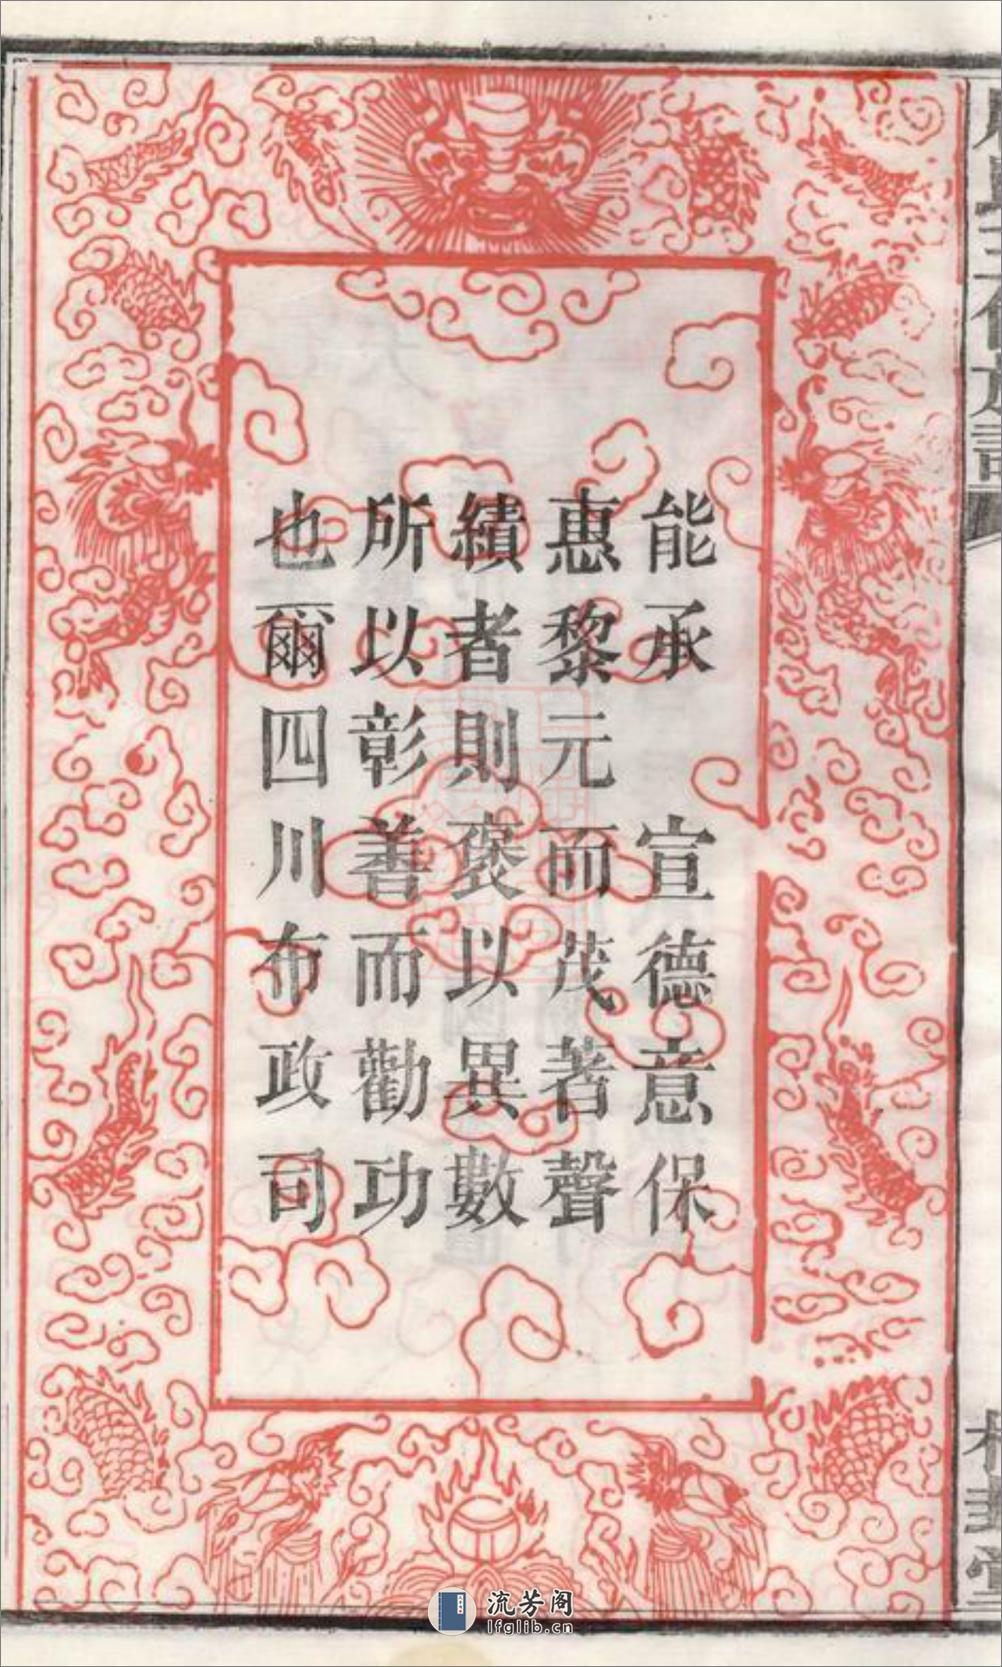 能承　宣德意保
惠黎元　而茂著聲
績者則褒以異數
所以彰善而勸功
也爾四川布政司
流芳阁
lfglib.cn